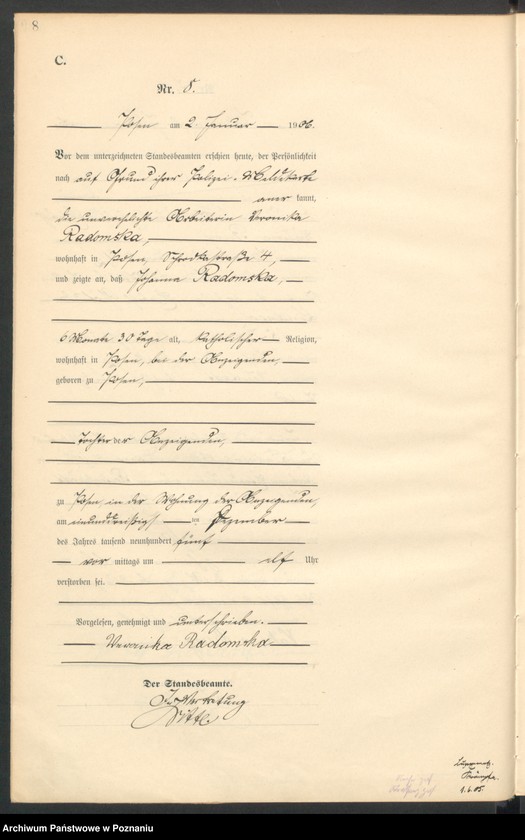 8
C.
Nr. 8.
Posen am 2 Januar 1906.
Vor dem unterzeichneten Standesbeamten erschien heute, der Persönlichkeit
nach auf Grund ihrer Polizei-Meldekarte
aner kannt,
die unverehelichte Arbeiterin Veronika
Radomska,
wohnhaft in Posen, Schrodkastraße 4,
und zeigte an, daß Johanna Radomska,
6 Monate 30 Tage alt, katholischer Religion,
wohnhaft in Posen, bei der Anzeigenden,
geboren zu Posen,
Tochter der Anzeigenden,
zu Posen, in der Wohnung der Anzeigenden,
am einunddreißigsten Dezember
des Jahres tausend neunhundert fünf
vor mittags um elf Uhr
verstorben sei.
Vorgelesen, genehmigt und unterschrieben.
Veronika Radomska
Der Standesbeamte.
In Vertretung
1.6.05.
Archiwum Państwowe w Poznaniu